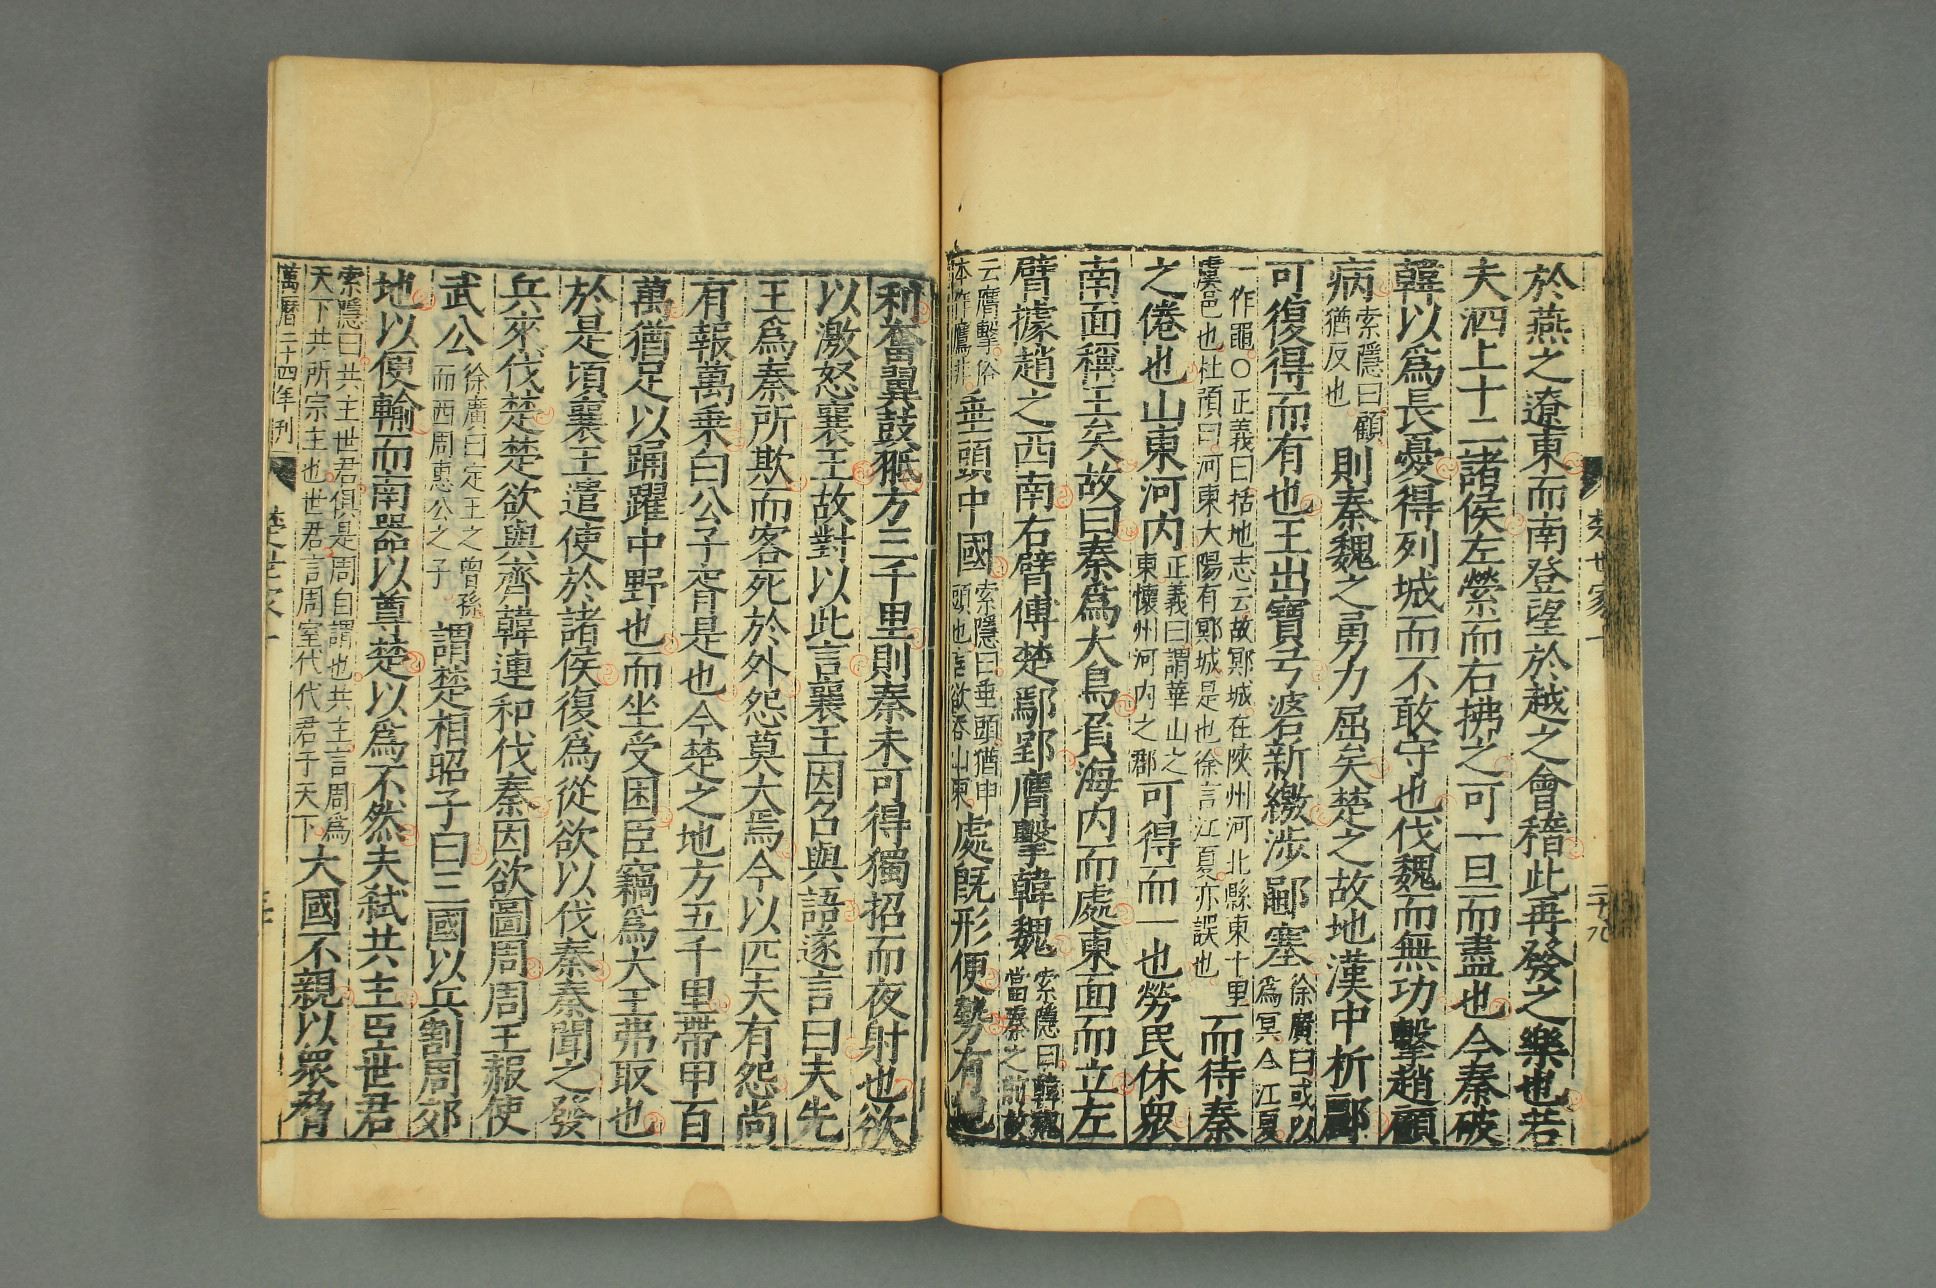 楚世家十
二十九
於燕之遼東而南登望於越之會稽此再發之樂也若
夫泗上十二諸侯左縈而右拂之可一旦而盡也今秦破
韓以爲長憂得列城而不敢守也伐魏而無功擊趙顧
病索隱曰顧猶反也則秦魏之勇力屈矣楚之故地漢中析酈
可復得而有也王出寶弓碆新繳涉鄳塞徐廣曰或以爲冥今江夏
一作黽○正義曰括地志云故鄳城在陝州河北縣東十里虞邑也杜預曰河東大陽有鄍城是也徐言江夏亦誤也而待秦
之倦也山東河内正義曰謂華山之東懷州河内之郡可得而一也勞民休眾
南面稱王矣故曰秦爲大鳥負海内而處東面而立左
臂據趙之西南右臂傅楚鄢郢膺擊韓魏索隱曰韓魏當秦之前故
云膺擊俗本作鷹非垂頭中國索隱曰垂頭猶申頭也言欲吞山東處旣形便勢有地
利奮翼鼓𦐊方三千里則秦未可得獨招而夜射也欲
以激怒襄王故對以此言襄王因召與語遂言曰夫先
王爲秦所欺而客死於外怨莫大焉今以匹夫有怨尚
有報萬乘白公子胥是也今楚之地方五千里帶甲百
萬猶足以踊躍中野也而坐受困臣竊爲大王弗取也
於是頃襄王遣使於諸侯復爲從欲以伐秦秦聞之發
兵來伐楚楚欲與齊韓連和伐秦因欲圖周周王赧使
武公徐廣曰定王之曾孫而西周惠公之子謂楚相昭子曰三國以兵割周郊
地以便輸而南器以尊楚以爲不然夫弑共主臣世君
索隱曰共主世君俱是周自謂也共主言周爲天下共所宗主也世君言周室代代君于天下大國不親以眾脅
萬曆二十四年刊
楚世家十
三十